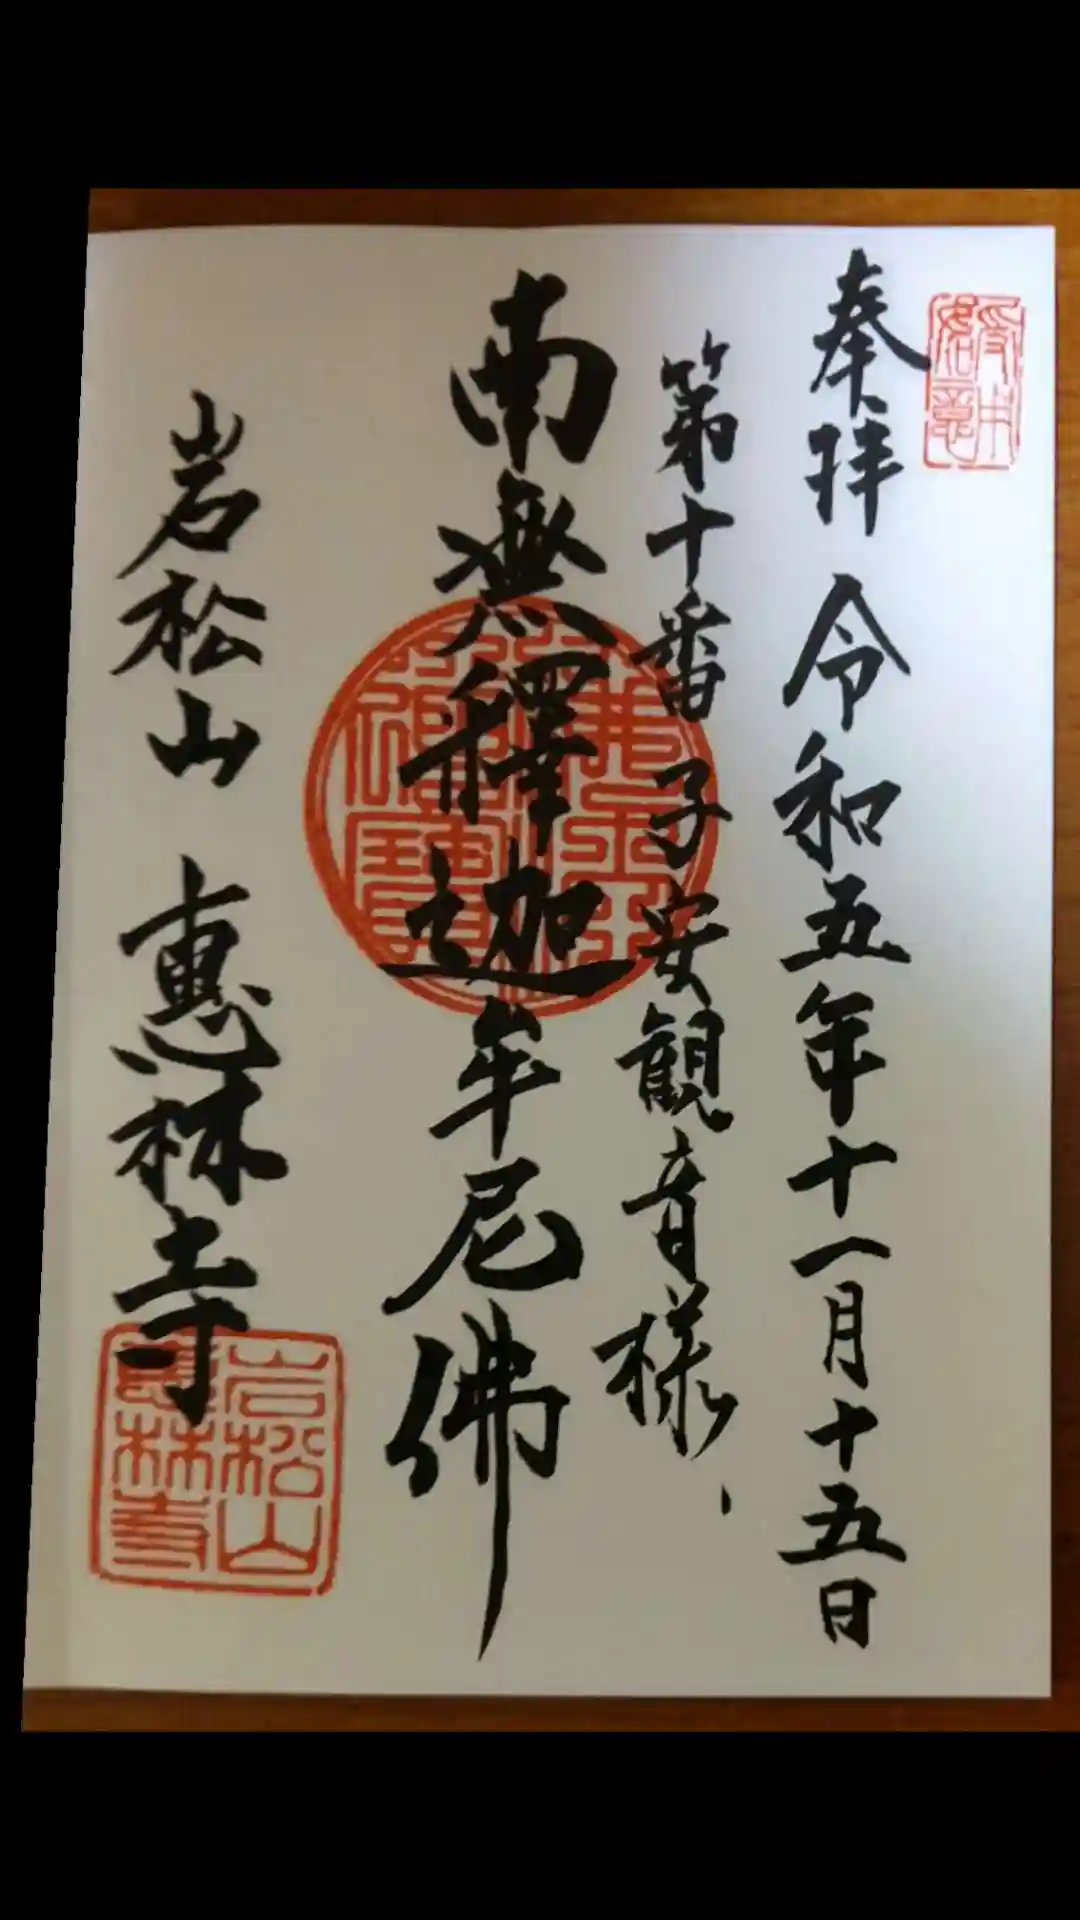 奉拝 令和五年十一月十五日
第十番子安観音様
南無釋迦牟尼佛
岩松山 惠林寺
岩松山
惠林寺